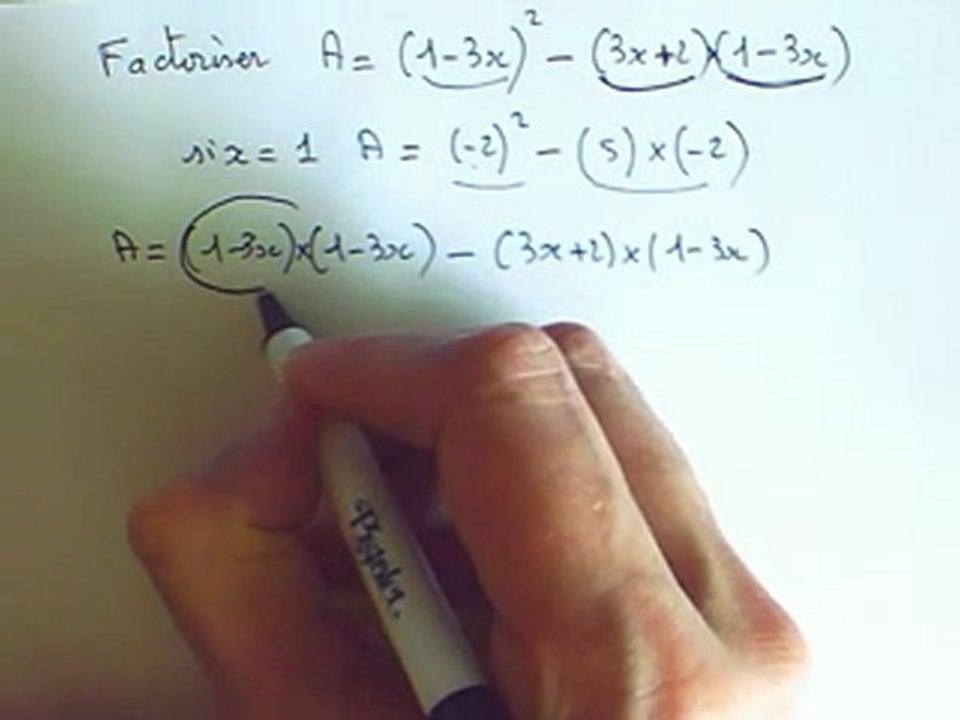 Factoriser A = (1-3x)² - (3x+2)×(1-3x)
si x = 1 A = (-2)² - (5)×(-2)
A = (1-3x)×(1-3x) - (3x+2)×(1-3x)